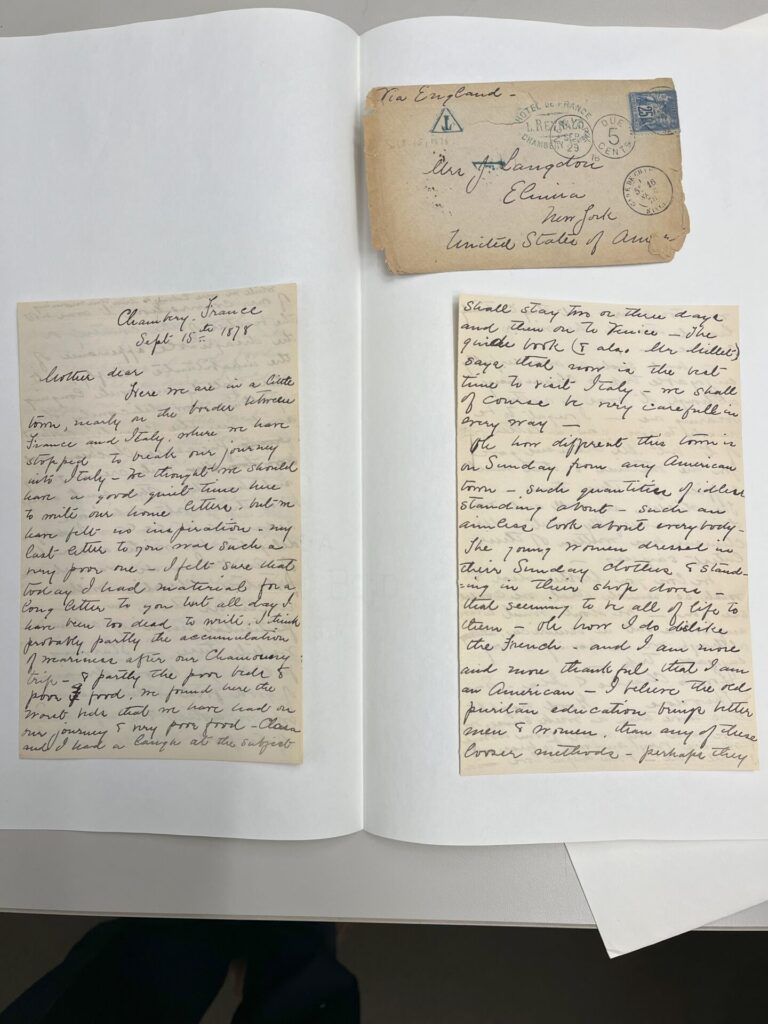 Via England -
T
HOTEL DE FRANCE
CHAMBERY
29
DUE
5
CENTS
25
Mrs J. Langdon
Elmira
New York
United States of Am
Chambery. France
Sept 15th 1878
Mother dear
Here we are in a little
town, nearly on the border between
France and Italy, where we have
stopped to break our journey
into Italy - We thought we should
have a good quiet time here
to write our home letters, but we
have felt no inspiration - my
last letter to you was such a
very poor one - I felt sure that
today I had material for a
long letter to you but all day I
have been too dead to write. I think
probably partly the accumulation
of weariness after our Chamouny
trip - & partly the poor beds &
poor food. We found here the
worst beds that we have had on
our journey & very poor food - Clara
and I had a laugh at the subject
shall stay two or three days
and then on to Venice - The
guide book (& also Mr Millet)
says that now is the best
time to visit Italy - we shall
of course be very carefull in
every way -
Oh how different this town is
on Sunday from any American
town - such quantities of idlers
standing about - such an
aimless look about everybody -
The young women dressed in
their Sunday clothes & stand-
=ing in their shop doors -
that seeming to be all of life to
them - oh how I do dislike
the French - and I am more
and more thankful that I am
an American - I believe the old
puritan education brings better
men & women, than any of these
looser methods - perhaps they